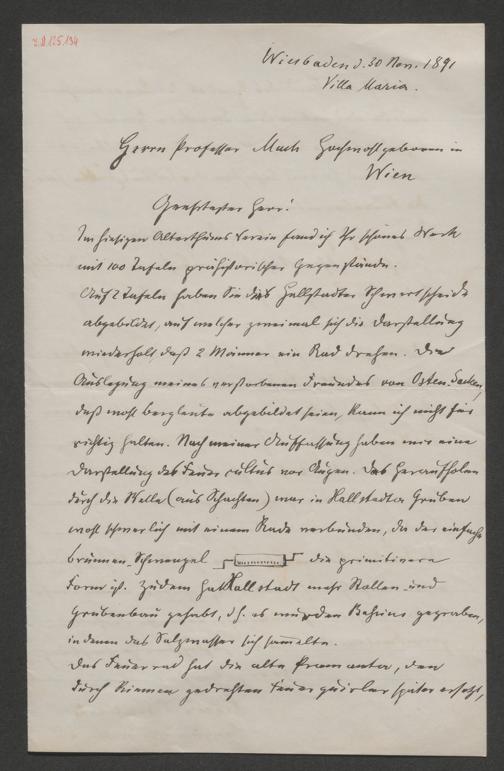 Wiesbaden d. 30 Nov. 1891
Villa Maria.
Herrn Professor Much Hochwohlgeboren in
Wien
Geehrtester Herr!
Im hiesigen Alterthums Verein fand ich Ihr schönes Werk
mit 100 Tafeln prähistorischer Gegenstände.
Auf 2 Tafeln haben Sie die Hallstadter Schwertscheide
abgebildet, auf welcher zweimal sich die Darstellung
wiederholt, daß 2 Männer ein Rad drehen. Die
Auslegung meines verstorbenen Freundes von Osten-Sacken,
daß wohl Bergleute abgebildet seien, kann ich nicht für
richtig halten. Nach meiner Auffassung haben wir eine
Darstellung des Feuer cultus vor Augen. Das Heraufholen
durch die Welle (aus Schachten) war in Hallstadter Gruben
wohl schwerlich mit einem Rade verbunden, da der einfache
Brunnen-Schwengel die primitivere
Form ist. Zudem hat Hallstadt mehr Stollen- und
Grubenbau gehabt, d. h. es wurden Bassins gegraben,
in denen das Salzwasser sich sammelte.
Das Feuerrad hat die alte Pramanta, den
durch Riemen gedrehten Feuerquirler später ersetzt,